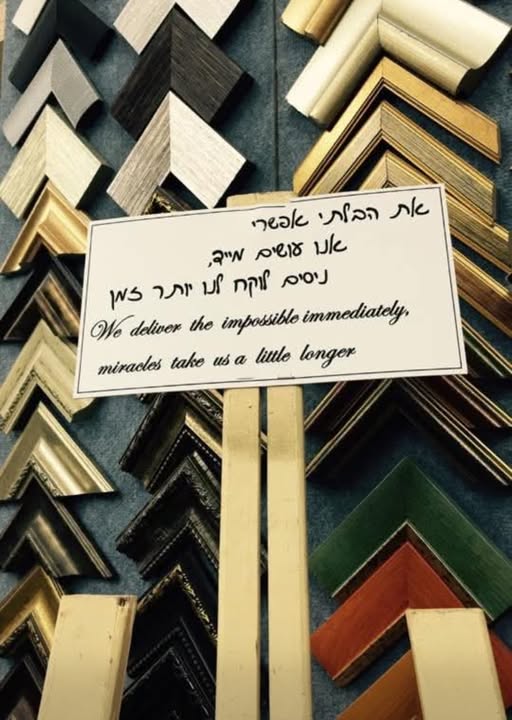 את הבלתי אפשרי
אנו עושים מייד,
ניסים לוקח לנו יותר זמן
We deliver the impossible immediately,
miracles take us a little longer